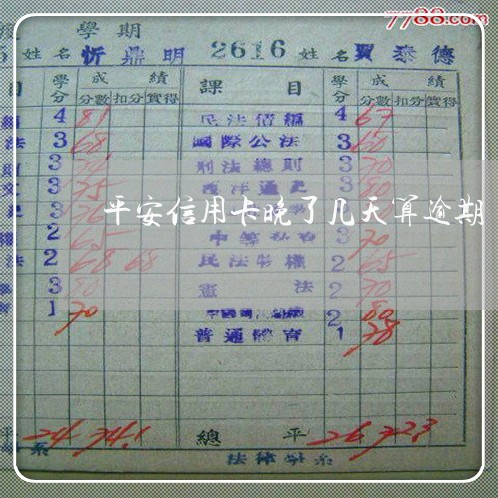 7788.com
學期
姓名 忻鼎明 2616 姓名 賈泰德
目 學分 成績 課目 學分 成績
分數 扣分 實得 分數 扣分 實得
4 81 民法債編 4 67
法 3 68 國際公法 3 60
則 3 刑法總則 3 70
3 75 西洋通史 3 80
平安信用卡晚了几天算逾期
2 65 3 70
法 2 68 68 民法物權 2 65
3 80 憲法 2 70
育 1 70 2 80
普通體育 1 78
平 24 74.1 總平 26 72.3
系 法律學系